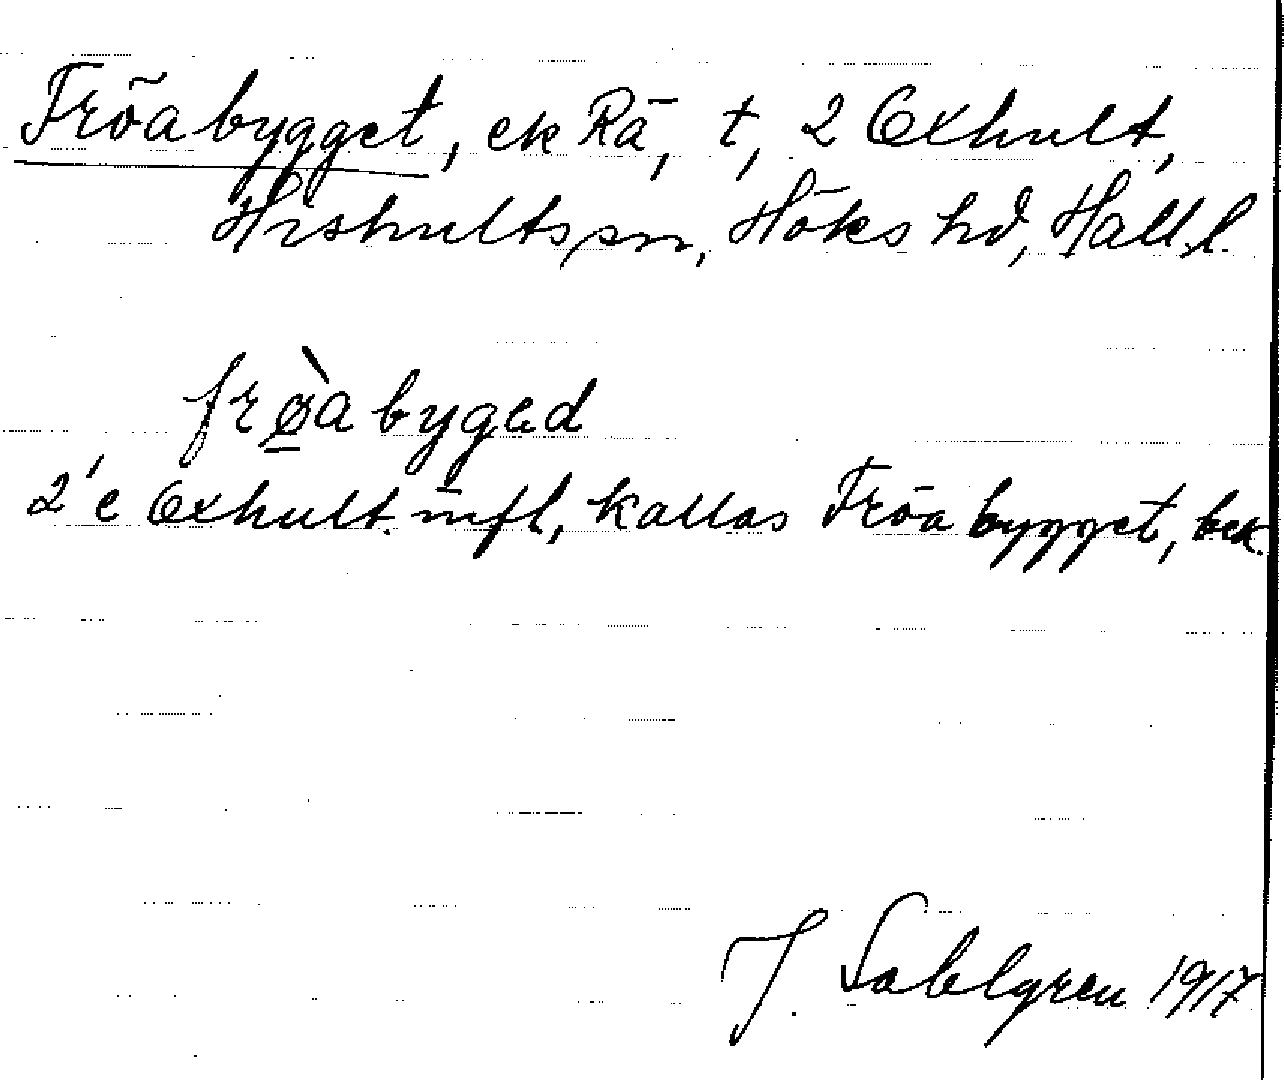 Fröabygget, ek Rä, t, 2 Exhult,
Hishults sn, Höks hd, Hall. l.
frø̀abygad
2'e Exhult mfl, kallas Fröabygget, bek.
J. Sahlgren 1917